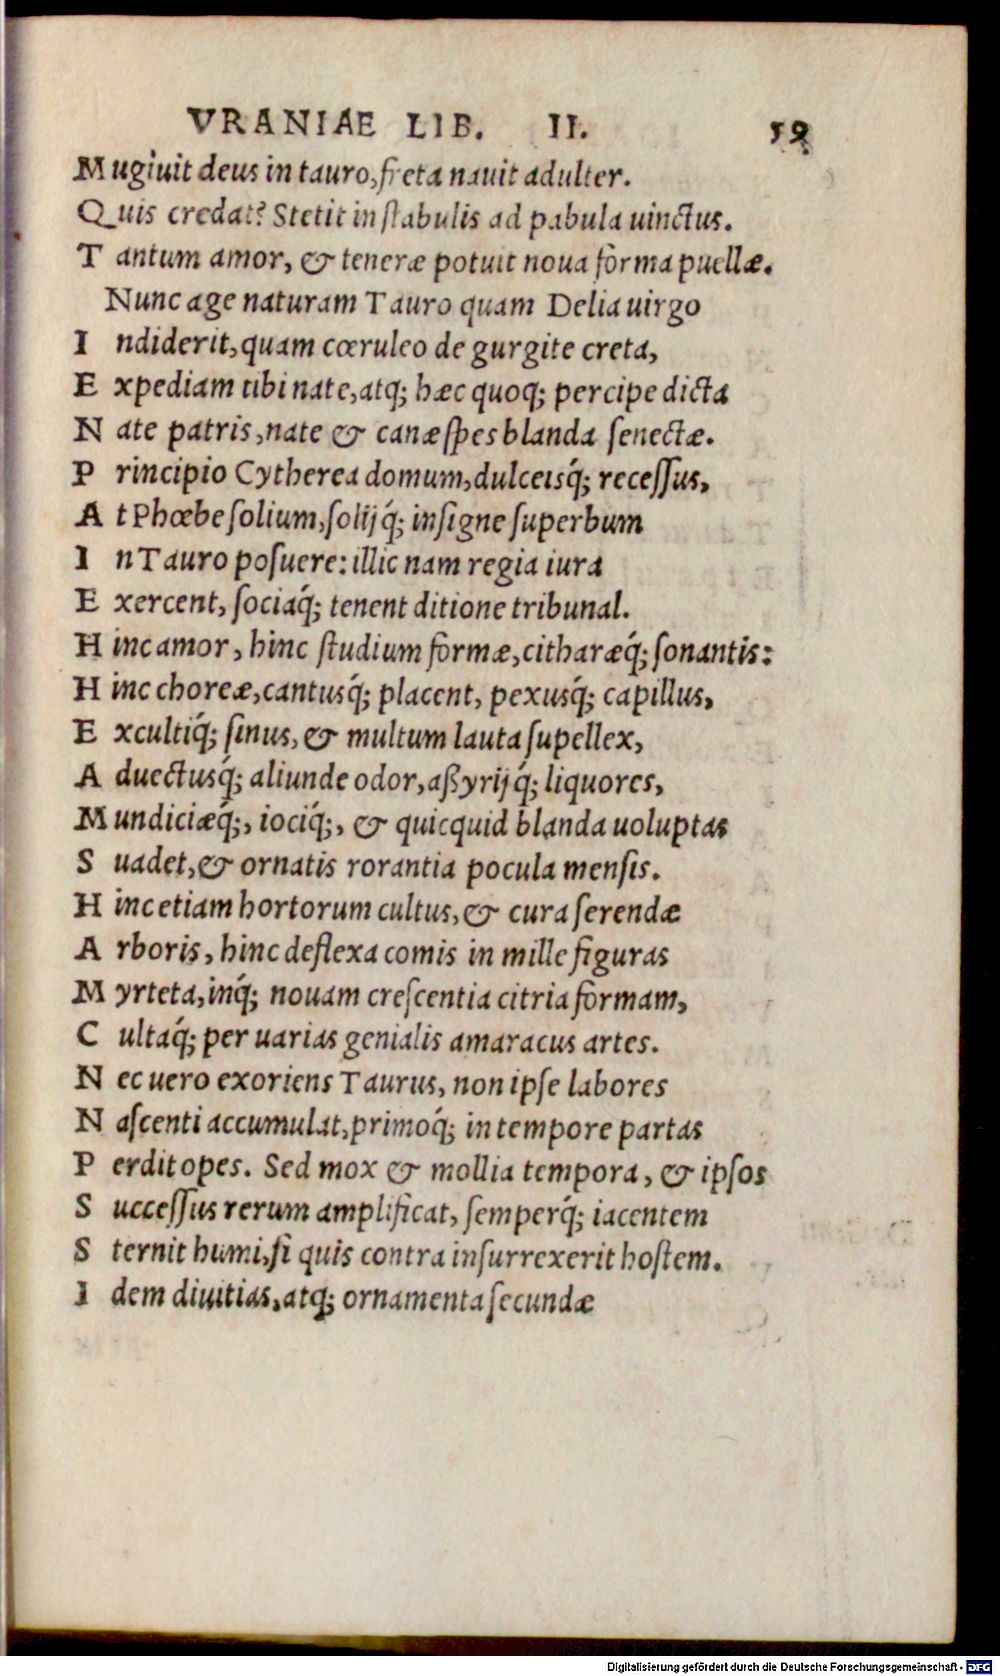 VRANIAE LIB. II. 59
Mugiuit deus in tauro, freta nauit adulter.
Quis credat? Stetit in stabulis ad pabula uinctus.
Tantum amor, & teneræ potuit noua forma puellæ.
Nunc age naturam Tauro quam Delia uirgo
Indiderit, quam cœruleo de gurgite creta,
Expediam tibi nate, atq; hæc quoq; percipe dicta
Nate patris, nate & canæ spes blanda senectæ.
Principio Cytherea domum, dulceisq́; recessus,
At Phœbe solium, solijq́; insigne superbum
In Tauro posuere: illic nam regia iura
Exercent, sociaq́; tenent ditione tribunal.
Hinc amor, hinc studium formæ, citharæq́; sonantis:
Hinc choreæ, cantusq́; placent, pexusq́; capillus,
Excultiq́; sinus, & multum lauta supellex,
Aduectusq́; aliunde odor, aßyrijq́; liquores,
Mundiciæq́;, iociq́;, & quicquid blanda uoluptas
Suadet, & ornatis rorantia pocula mensis.
Hinc etiam hortorum cultus, & cura serendæ
Arboris, hinc deflexa comis in mille figuras
Myrteta, inq́; nouam crescentia citria formam,
Cultaq́; per uarias genialis amaracus artes.
Nec uero exoriens Taurus, non ipse labores
Nascenti accumulat, primoq́; in tempore partas
Perdit opes. Sed mox & mollia tempora, & ipsos
Successus rerum amplificat, semperq́; iacentem
Sternit humi, si quis contra insurrexerit hostem.
Idem diuitias, atq; ornamenta secundæ
Digitalisierung gefördert durch die Deutsche Forschungsgemeinschaft - DFG